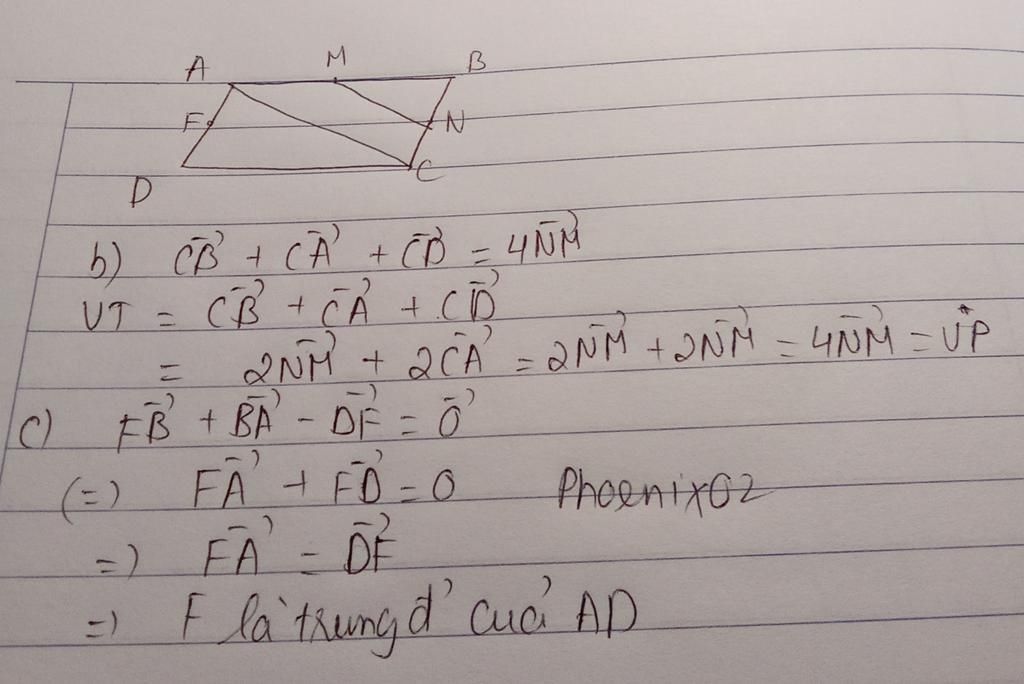 A M B
F N
D C
b) $\vec{CB} + \vec{CA} + \vec{CD} = 4\vec{NM}$
VT = $\vec{CB} + \vec{CA} + \vec{CD}$
= $2\vec{NM} + 2\vec{CA} = 2\vec{NM} + 2\vec{NM} = 4\vec{NM}$ = VP
c) $\vec{FB} + \vec{BA} - \vec{DF} = \vec{0}$
(=) $\vec{FA} + \vec{FD} = 0$ Phoenix02
=) $\vec{FA} = \vec{DF}$
=) F là trung đ' cuả AD